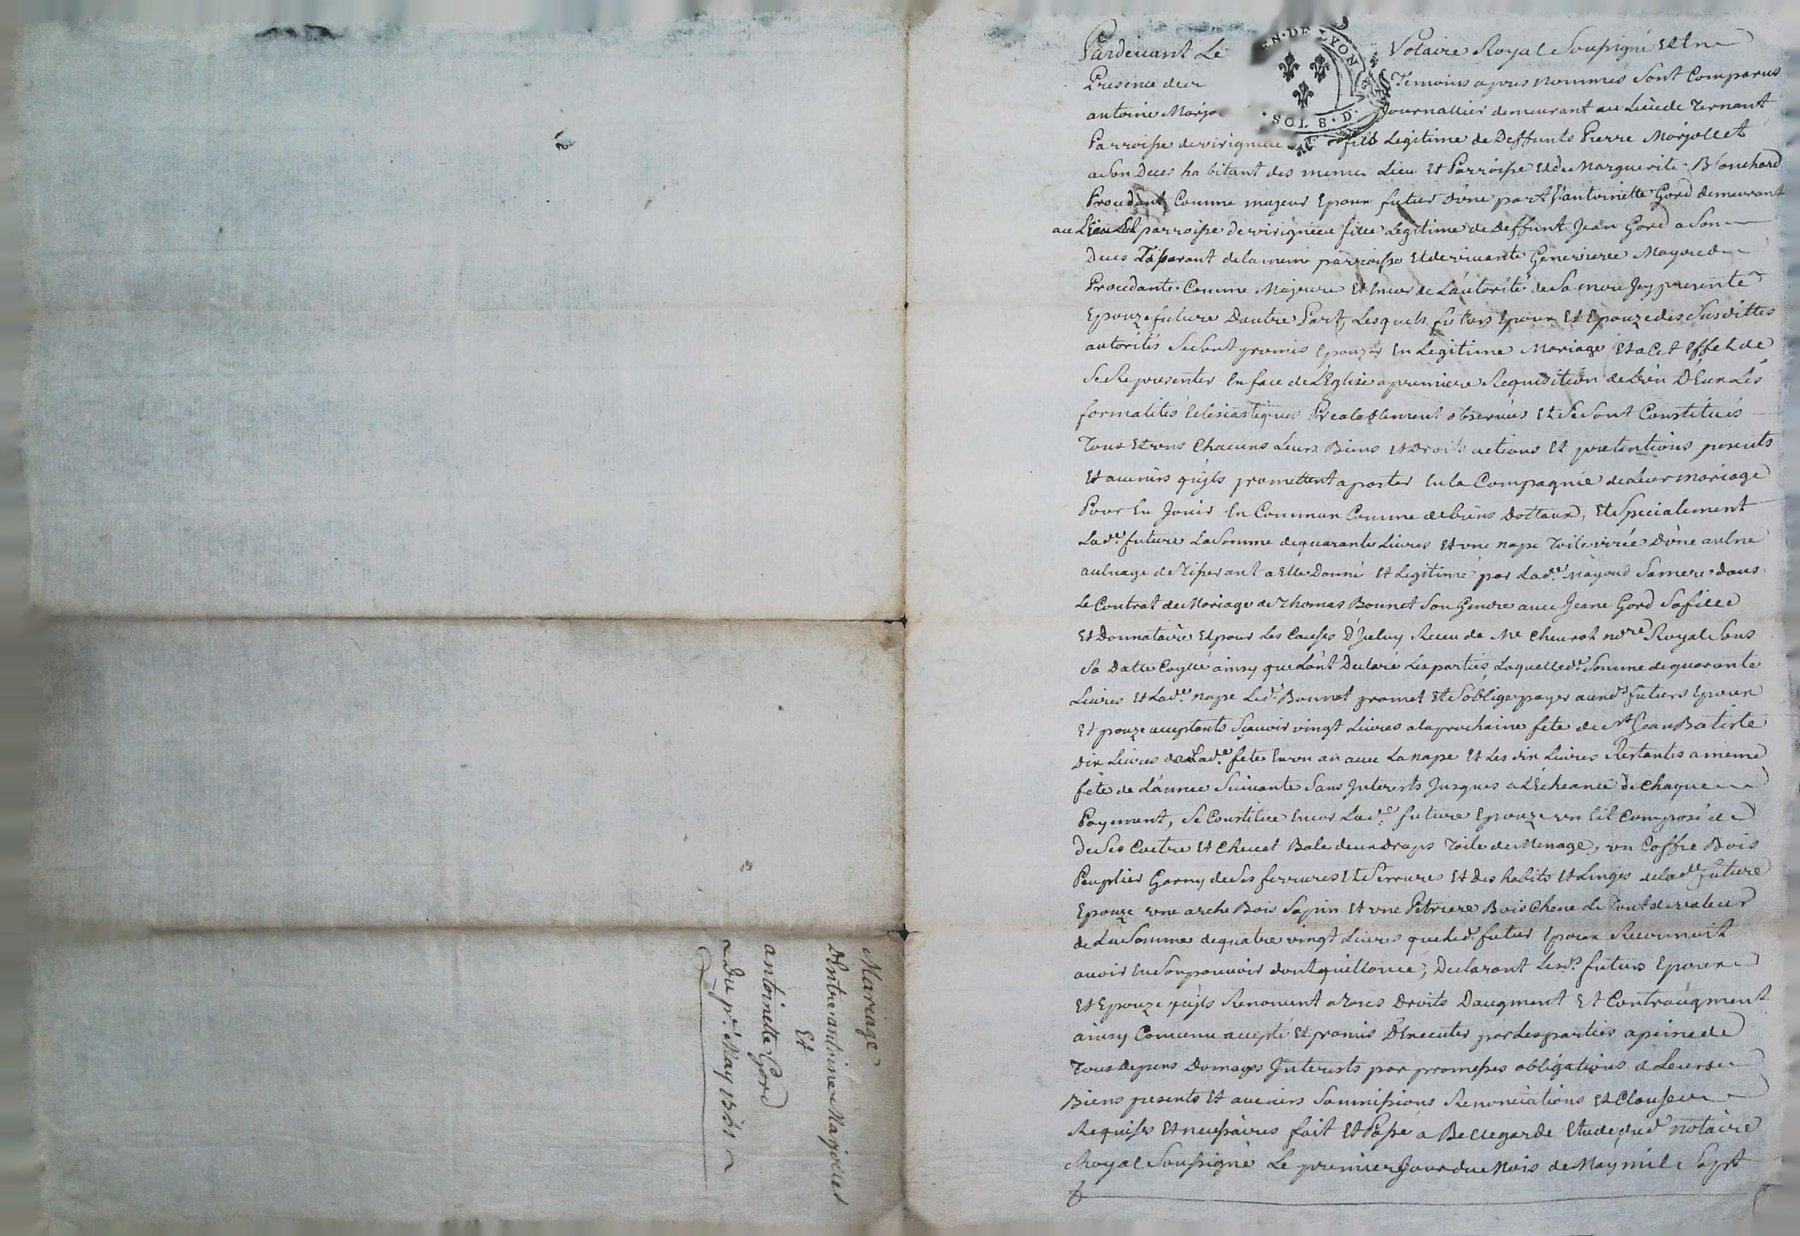 Mariage
D'Entre antoine Marjollet
Et
antoinette Gord
Du pr. May
Pardevant Le Notaire Royal Soussigné Et En
Presence des Temoins apres nommés Sont Comparus
antoine Marjo journallier demeurant au Lieu de Ternant
Parroisse de virignieu fils Legitime de Deffunts Pierre Marjollet
a Son Deces habitant des meme Lieu Et Parroisse Et de Marguerite Blonchard
Procedant Comme majeur Epoux futur D'une part Et antoinette Gord demeurant
au parroisse de virignieu fille Legitime de Deffunt Jean Gord a Son
Deces Tisserant de la meme parroisse Et de vivante Genevieve Mayoud
Procedante Comme Majeure Et Encor de L'autorité de Sa mere Jcy presente
Epouze future Dautre Part, Lesquels futurs Epoux Et Epouze des Susdittes
autorités Se Sont promis Epouzer En Legitime Mariage Et a Cet Effet de
Se Representer En face de L'Eglise a premiere Requisition de L'un D'Eux Les
formalités Eclesiastiques Prealablement observées Et Se Sont Constitués
Tous Et uns Chacuns Leurs Biens Et Droits actions Et pretentions presents
Et avenirs qu'jls promettent aporter En la Compagnie de Leur mariage
Pour En Jouir En Commun Comme de biens Dottaux, Et Specialement
Lade. future La Somme de quarante Livres Et une nape Toile D'une aulne
aulnage de Tisserant a Elle Donné Et Legitimé par Lade. Mayoud Sa mere dans
Le Contrat de Mariage de Thomas Bonnet Son Gendre avec Jeane Gord Sa fille
Et Donnataire Et pour Les Causes D'Jceluy Receu de Me Cheurot nore Royal Sous
Sa Datte ainsy que L'ont Declaré Les parties Laquelle de. Somme de quarante
Livres Et Lade. nape Led. Bonnet promet Et S'oblige payer auxds. futurs Epoux
Et Epouze acceptants Scavoir vingt Livres a la prochaine fete de St Jean Batiste
Dix Livres a Lade. fete En un an avec La nape Et Les dix Livres Restantes a meme
fete de L'année Suivante Sans Jnterests Jusques a L'Echeance de Chaque
Payement, Se Constitue Encor Lade. future Epouze un Lit Composé de
de Ses Coetre Et Chevet Bale deux Draps Toile de Menage, un Coffre Bois
Peuplier Garny de Ses ferrures Et Serrures Et des habits Et Linges de Lade. future
Epouze une arche Bois Sapin Et une Petriere Bois Chene Le Tout de valeur
de La Somme de quatre vingt Livres que Led. futur Epoux Reconnoit
avoir En Son pouvoir dont quittance, Declarant Lesds. futurs Epoux
Et Epouze qu'jls Renoncent a Tous Droits Daugment Et Contraugment
ainsy Convenu accepté Et promis D'Executer par Les parties a peine de
Tous Depens Domages Jnterests par promesses obligations de Leurs
Biens presents Et avenirs Soumissions Renonciations Et Clauses
Requises Et necessaires fait Et Passé a Bellegarde Etude dud. notaire
Royal Soussigné Le premier Jour du Mois de May mil Sept